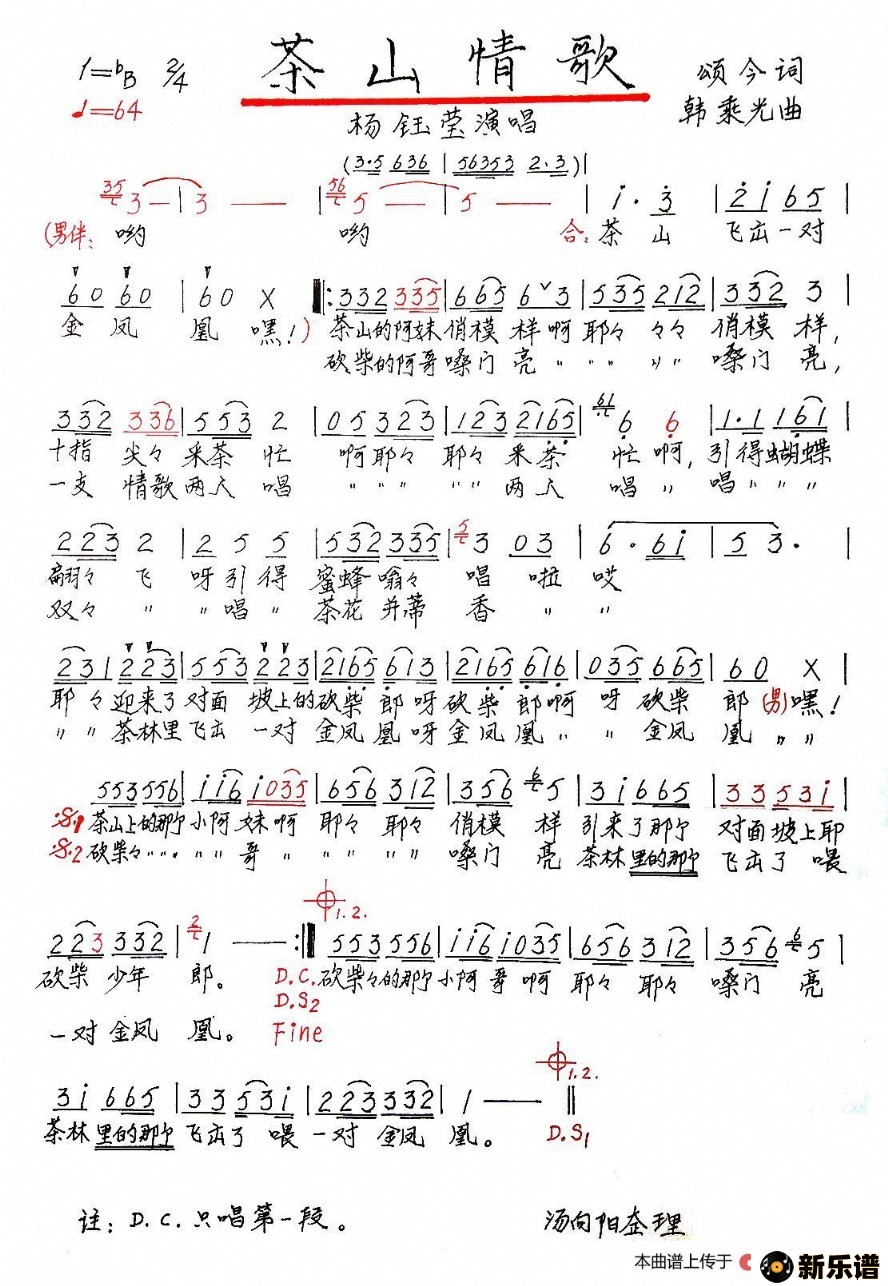 茶山情歌
1=♭B 2/4
颂今词
♩=64
韩乘光曲
杨钰莹演唱
(3·5 636 | 56353 2·3)|
3— | 3 — — | 5 — | 5 — — | i· 3 | 2i65 |
(男伴: 哟 哟 合: 茶 山 飞出一对
60 60 | 60 X |: 332 335 | 665 6ˇ3 | 535 212 | 332 3 |
金 凤 凰 嘿!) 茶山的阿妹俏模样啊耶々々々俏模样,
砍柴的阿哥嗓门亮〃〃〃〃嗓门亮,
332 336 | 553 2 | 05 323 | 123 2165 | 6 6 | 1·1 161 |
十指尖々采茶忙 啊耶々耶々采茶忙啊,引得蝴蝶
一支情歌两人唱 〃〃〃〃〃两人唱〃唱〃〃〃
223 2 | 2 5 5 | 532 335 | 3 03 | 6·6i | 5 3· |
翩々飞呀引得蜜蜂嗡々唱啦哎
双々〃〃唱〃茶花并蒂香〃〃
231 223 | 553 223 | 2165 613 | 2165 616 | 035 665 | 60 X |
耶々迎来了对面坡上的砍柴郎呀砍柴郎啊呀砍柴郎(男)嘿!
〃〃茶林里飞出一对金凤凰呀金凤凰〃〃金凤凰〃〃
553556 | ii6 i035 | 656 312 | 356 5 | 3i665 | 3353i |
𝄋1 茶山上的那个小阿妹啊耶々耶々俏模样引来了那个对面坡上耶
𝄋2 砍柴々〃〃〃〃〃哥〃〃〃〃〃嗓门亮茶林里的那个飞出了喂
1.2.
223 332 | 1 — :| 553556 | ii6 i035 | 656 312 | 356 5 |
砍柴少年郎。 D.C. 砍柴々的那个小阿哥啊耶々耶々嗓门亮
D.S2
一对金凤凰。 Fine
1.2.
3i 665 | 33 53i | 223 332 | 1 — ‖
茶林里的那个飞出了喂一对金凤凰。 D.S1
注:D.C.只唱第一段。 汤向阳整理
本曲谱上传于 新乐谱